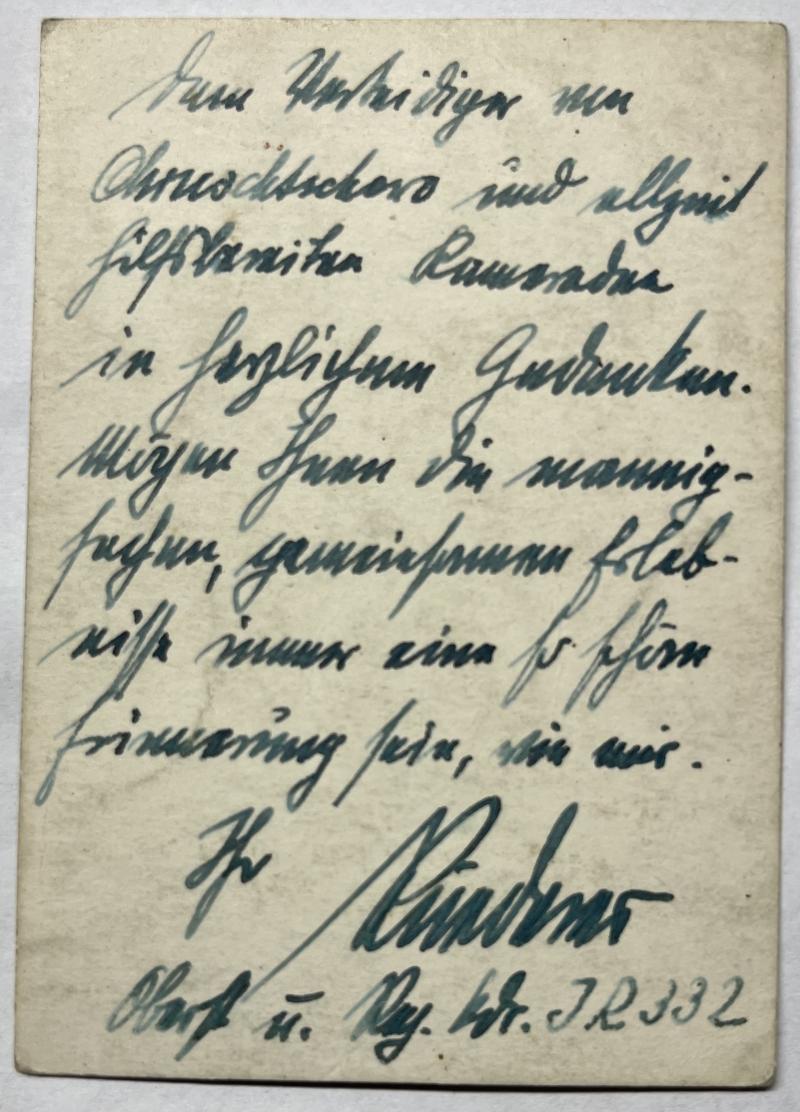 Dem Verteidiger von
und allzeit
hilfsbereiten Kameraden
in herzlichem Gedenken.
Mögen Ihnen die mannig-
fachen, gemeinsamen Erleb-
nisse immer eine so schöne
Erinnerung sein, wie mir.
Ihr
Oberst u. Reg. Kdr. IR 332